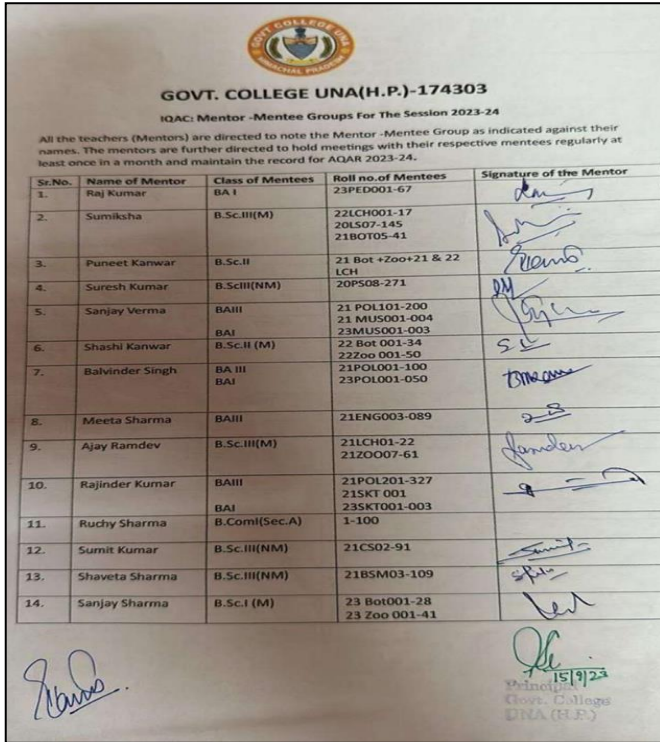 GOVT COLLEGE UNA
HIMACHAL PRADESH
GOVT. COLLEGE UNA(H.P.)-174303
IQAC: Mentor -Mentee Groups For The Session 2023-24
All the teachers (Mentors) are directed to note the Mentor -Mentee Group as indicated against their
names. The mentors are further directed to hold meetings with their respective mentees regularly at
least once in a month and maintain the record for AQAR 2023-24.
Sr.No. Name of Mentor Class of Mentees Roll no.of Mentees Signature of the Mentor
1. Raj Kumar BA I 23PED001-67
2. Sumiksha B.Sc.III(M) 22LCH001-17
20LS07-145
21BOT05-41
3. Puneet Kanwar B.Sc.II 21 Bot +Zoo+21 & 22
LCH
4. Suresh Kumar B.ScIII(NM) 20PS08-271
5. Sanjay Verma BAIII 21 POL101-200
21 MUS001-004
BAI 23MUS001-003
6. Shashi Kanwar B.Sc.II (M) 22 Bot 001-34
22Zoo 001-50
7. Balvinder Singh BA III 21POL001-100
BAI 23POL001-050
8. Meeta Sharma BAIII 21ENG003-089
9. Ajay Ramdev B.Sc.III(M) 21LCH01-22
21ZOO07-61
10. Rajinder Kumar BAIII 21POL201-327
21SKT 001
BAI 23SKT001-003
11. Ruchy Sharma B.ComI(Sec.A) 1-100
12. Sumit Kumar B.Sc.III(NM) 21CS02-91
13. Shaveta Sharma B.Sc.III(NM) 21BSM03-109
14. Sanjay Sharma B.Sc.I (M) 23 Bot001-28
23 Zoo 001-41
15/9/23
Principal
Govt. College
UNA (H.P.)